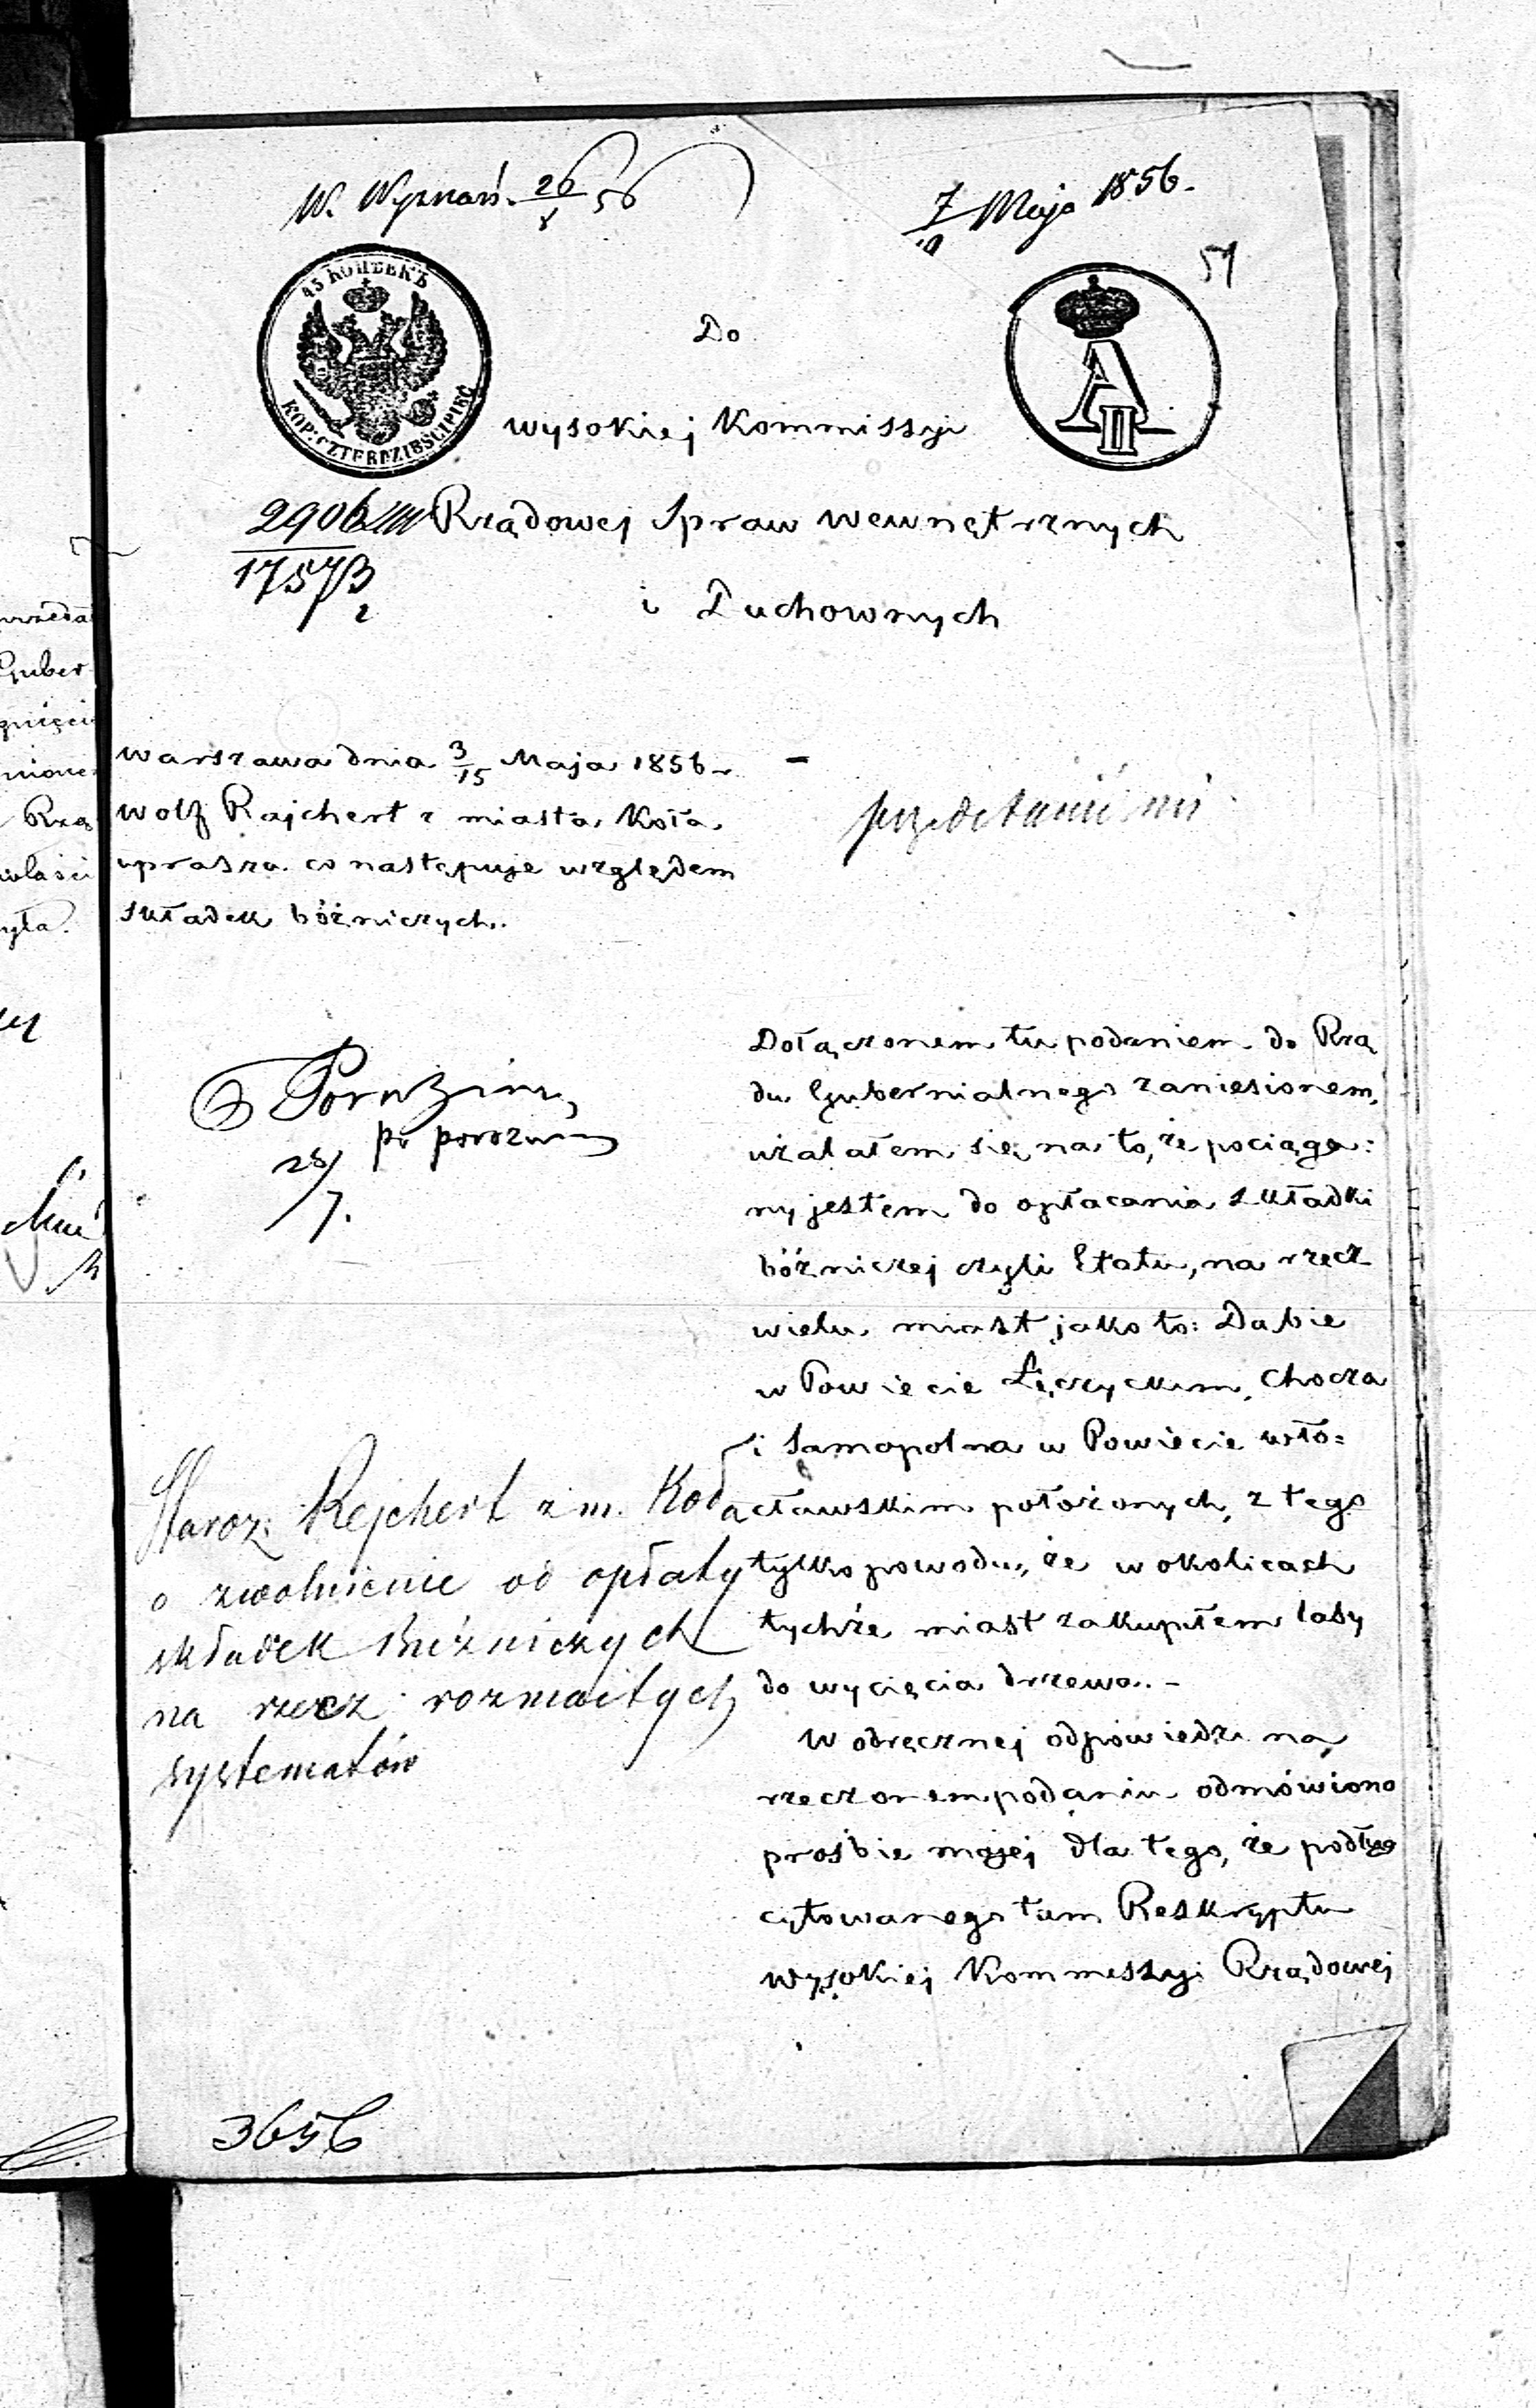 W. Wyznań. 26/V 56
7/10 Maja 1856.
51
45 КОПѢЕКЪ
KOP: CZTERDZIEŚCI PIĘĆ
A II
Do
wysokiej Kommissyi
2906
Rządowej Spraw wewnętrznych
17573
i Duchownych
warszawa dnia 3/15 Maja 1856 -
wolf Rajchert z miasta Koła
uprasza co następuje względem
składek bóżniczych.
Dołączonem tu podaniem do Rzą
du Gubernialnego zaniesionem,
użalałem się na to, że pociąga:
ny jestem do opłacania składki
bóżniczej czyli Etatu, na rzecz
wielu miast jako to: Dabie
w Powiecie Łęczyckim, Chocza
i Samopolna w Powiecie wło=
cławskim położonych, z tego
tylko powodu, że w okolicach
tychże miast zakupiłem lasy
do wycięcia drzewa. -
W odręcznej odpowiedzi na
rzeczonem podaniu odmówiono
prośbie mojej dla tego, że podług
cytowanego tam Reskryptu
wysokiej Kommissyi Rządowej
28/7.
Staroz: Rejchert z m. Koła
o zwolnienie od opłaty
składek bóżniczych
na rzecz rozmaitych
systematów
3656